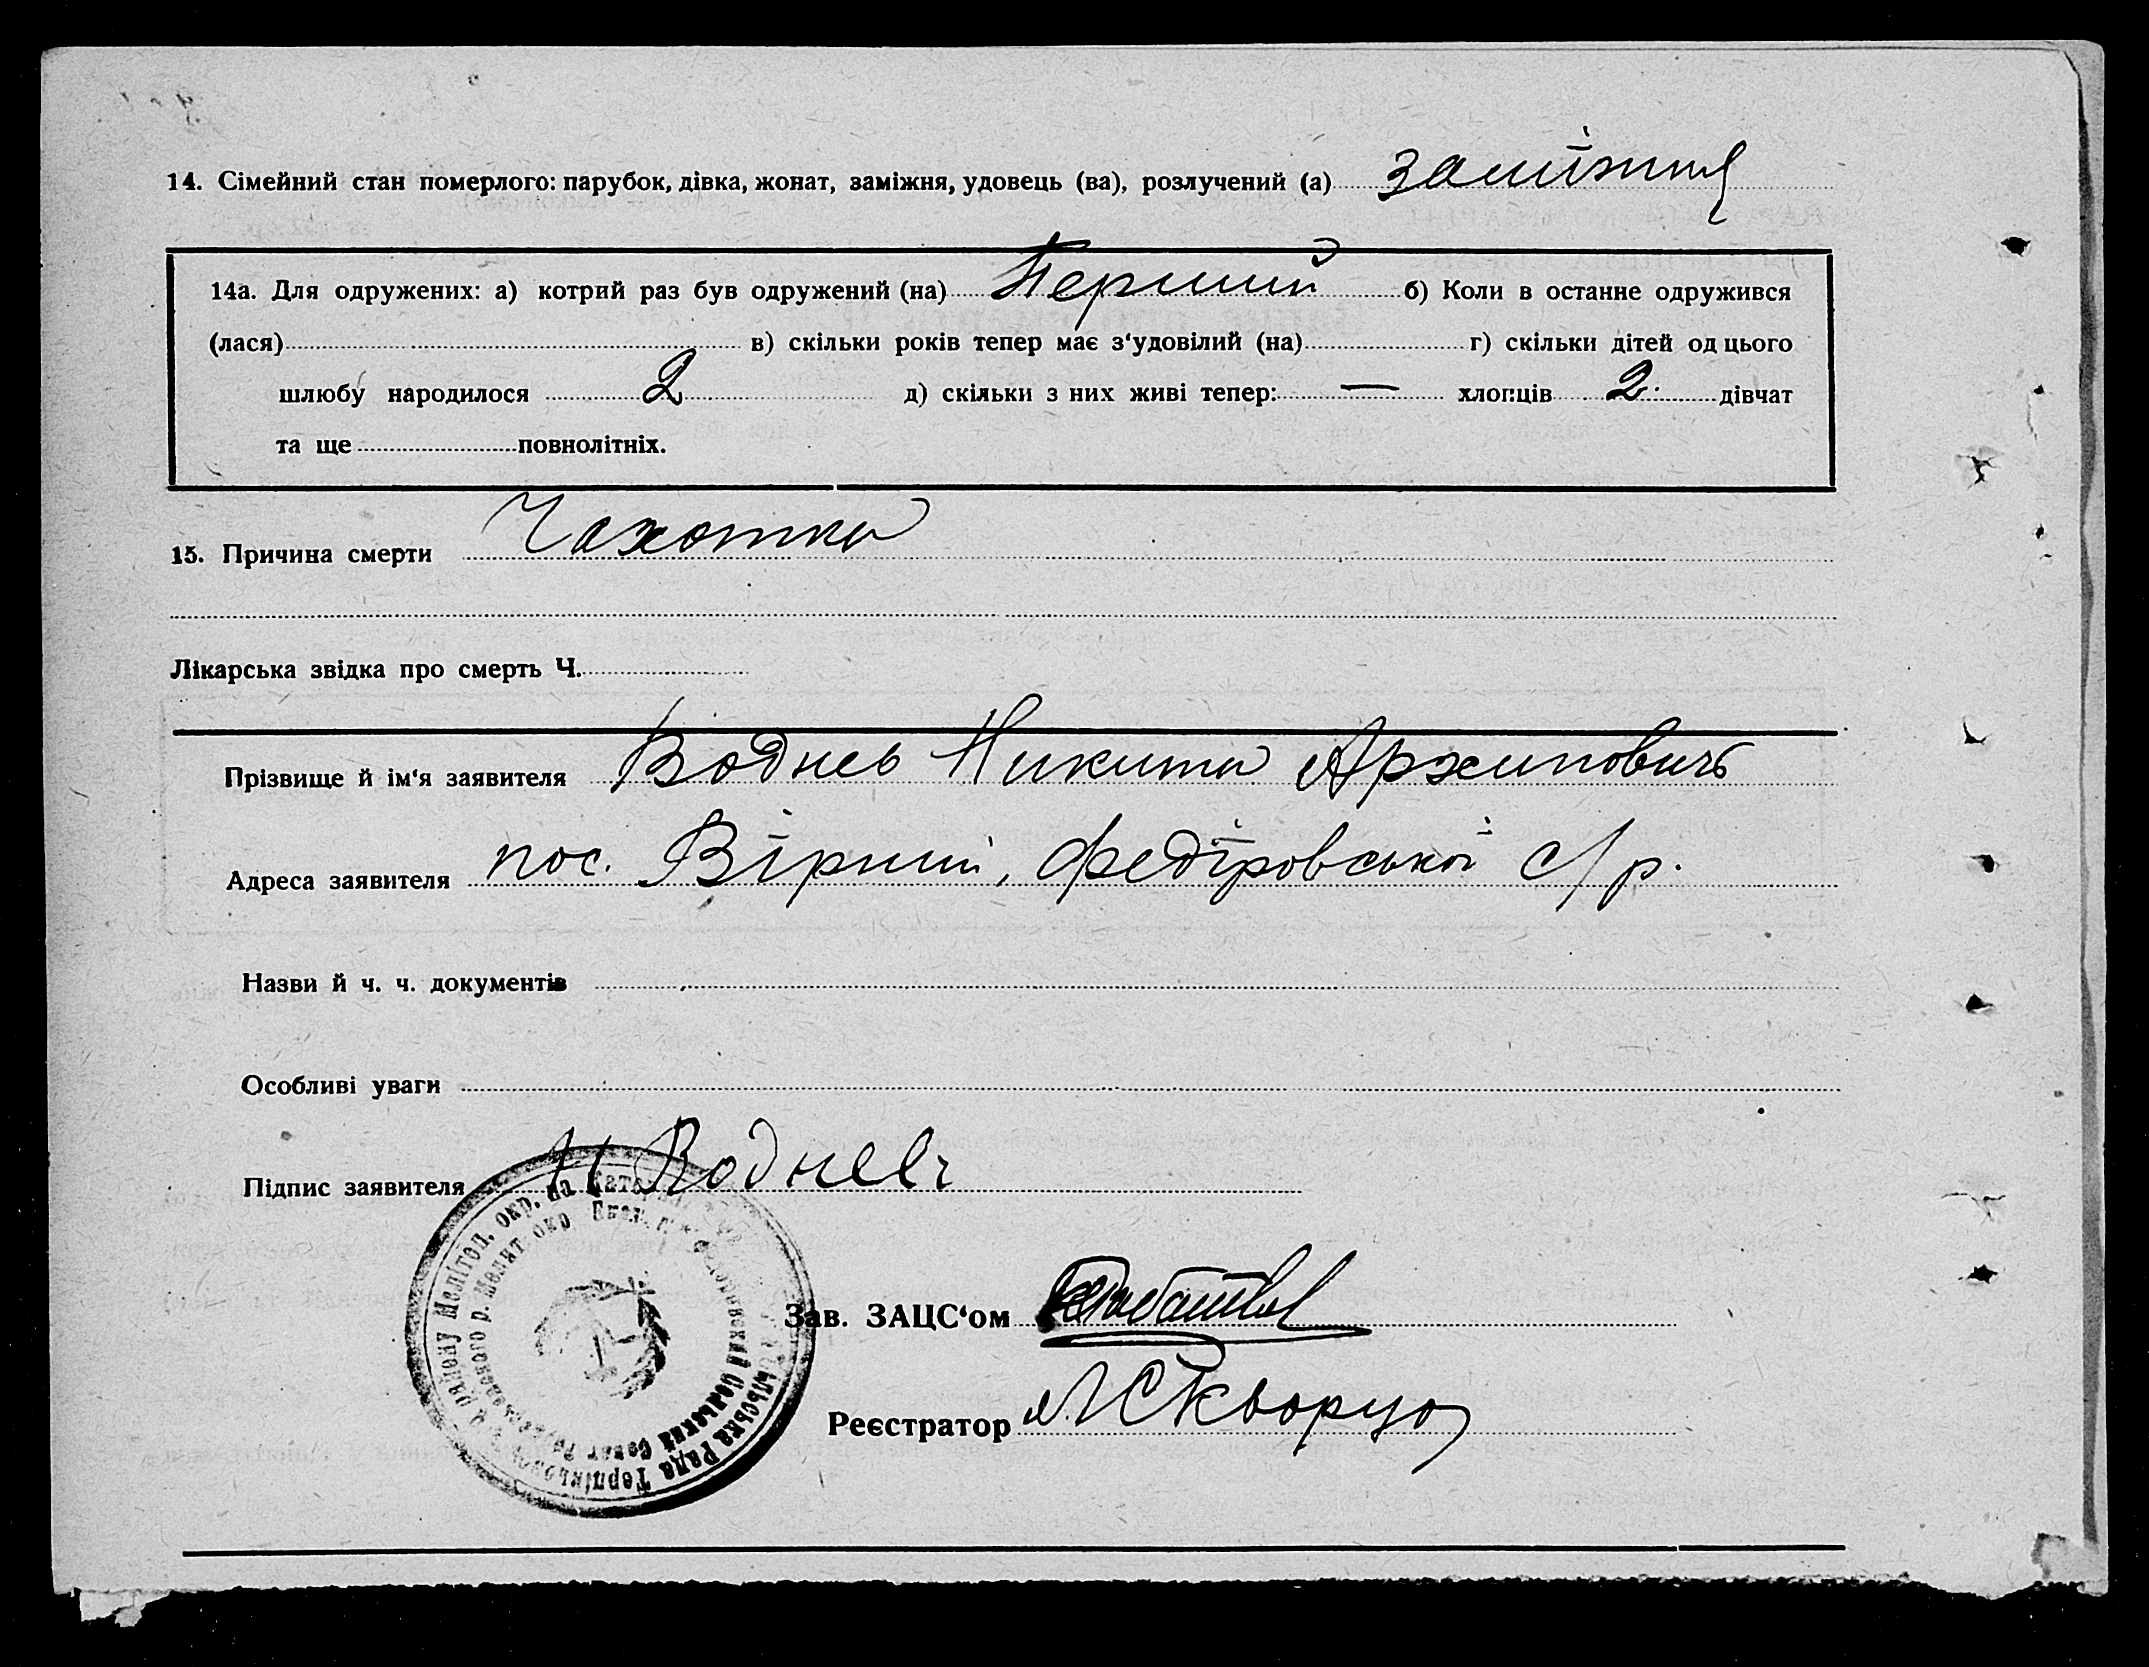 14. Сімейний стан померлого: парубок, дівка, жонат, заміжня, удовець (ва), розлучений (а) заміжня
14а. Для одружених: а) котрий раз був одружений (на) Перший б) Коли в останнє одружився
(лася) в) скільки років тепер має з‘удовілий (на) г) скільки дітей од цього
шлюбу народилося 2 д) скільки з них живі тепер: — хлопців 2 дівчат
та ще повнолітніх.
15. Причина смерти Чахотка
Лікарська звідка про смерть Ч.
Прізвище й ім‘я заявителя Воднев Никита Архипович
Адреса заявителя пос. Вірний, Федіровської с/р.
Назви й ч. ч. документів
Особливі уваги
Підпис заявителя Н Водневъ
Зав. ЗАЦС‘ом
Реєстратор Скворцов
району Мелітоп. окр. на Катер
Мелит окр. Екат. г. Федоровский Сельский Совет
сільська Рада Терпіньов